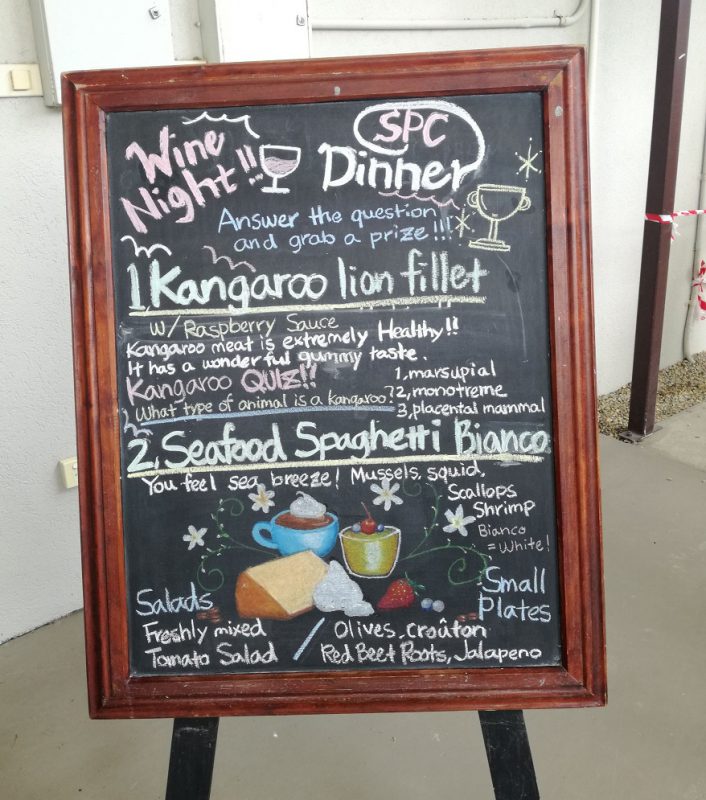 Wine
Night!!
SPC
Dinner
Answer the question
and grab a prize!!!
1 Kangaroo lion fillet
w/ Raspberry Sauce
Kangaroo meat is extremely Healthy!!
It has a wonderful gummy taste.
Kangaroo QUIZ!!
What type of animal is a kangaroo?
1, marsupial
2, monotreme
3, placental mammal
2, Seafood Spaghetti Bianco
You feel sea breeze! Mussels, squid,
Scallops
Shrimp
Bianco
=White!
Salads
Freshly mixed
Tomato Salad
Small
Plates
Olives, croûton
Red Beet Roots, Jalapeno